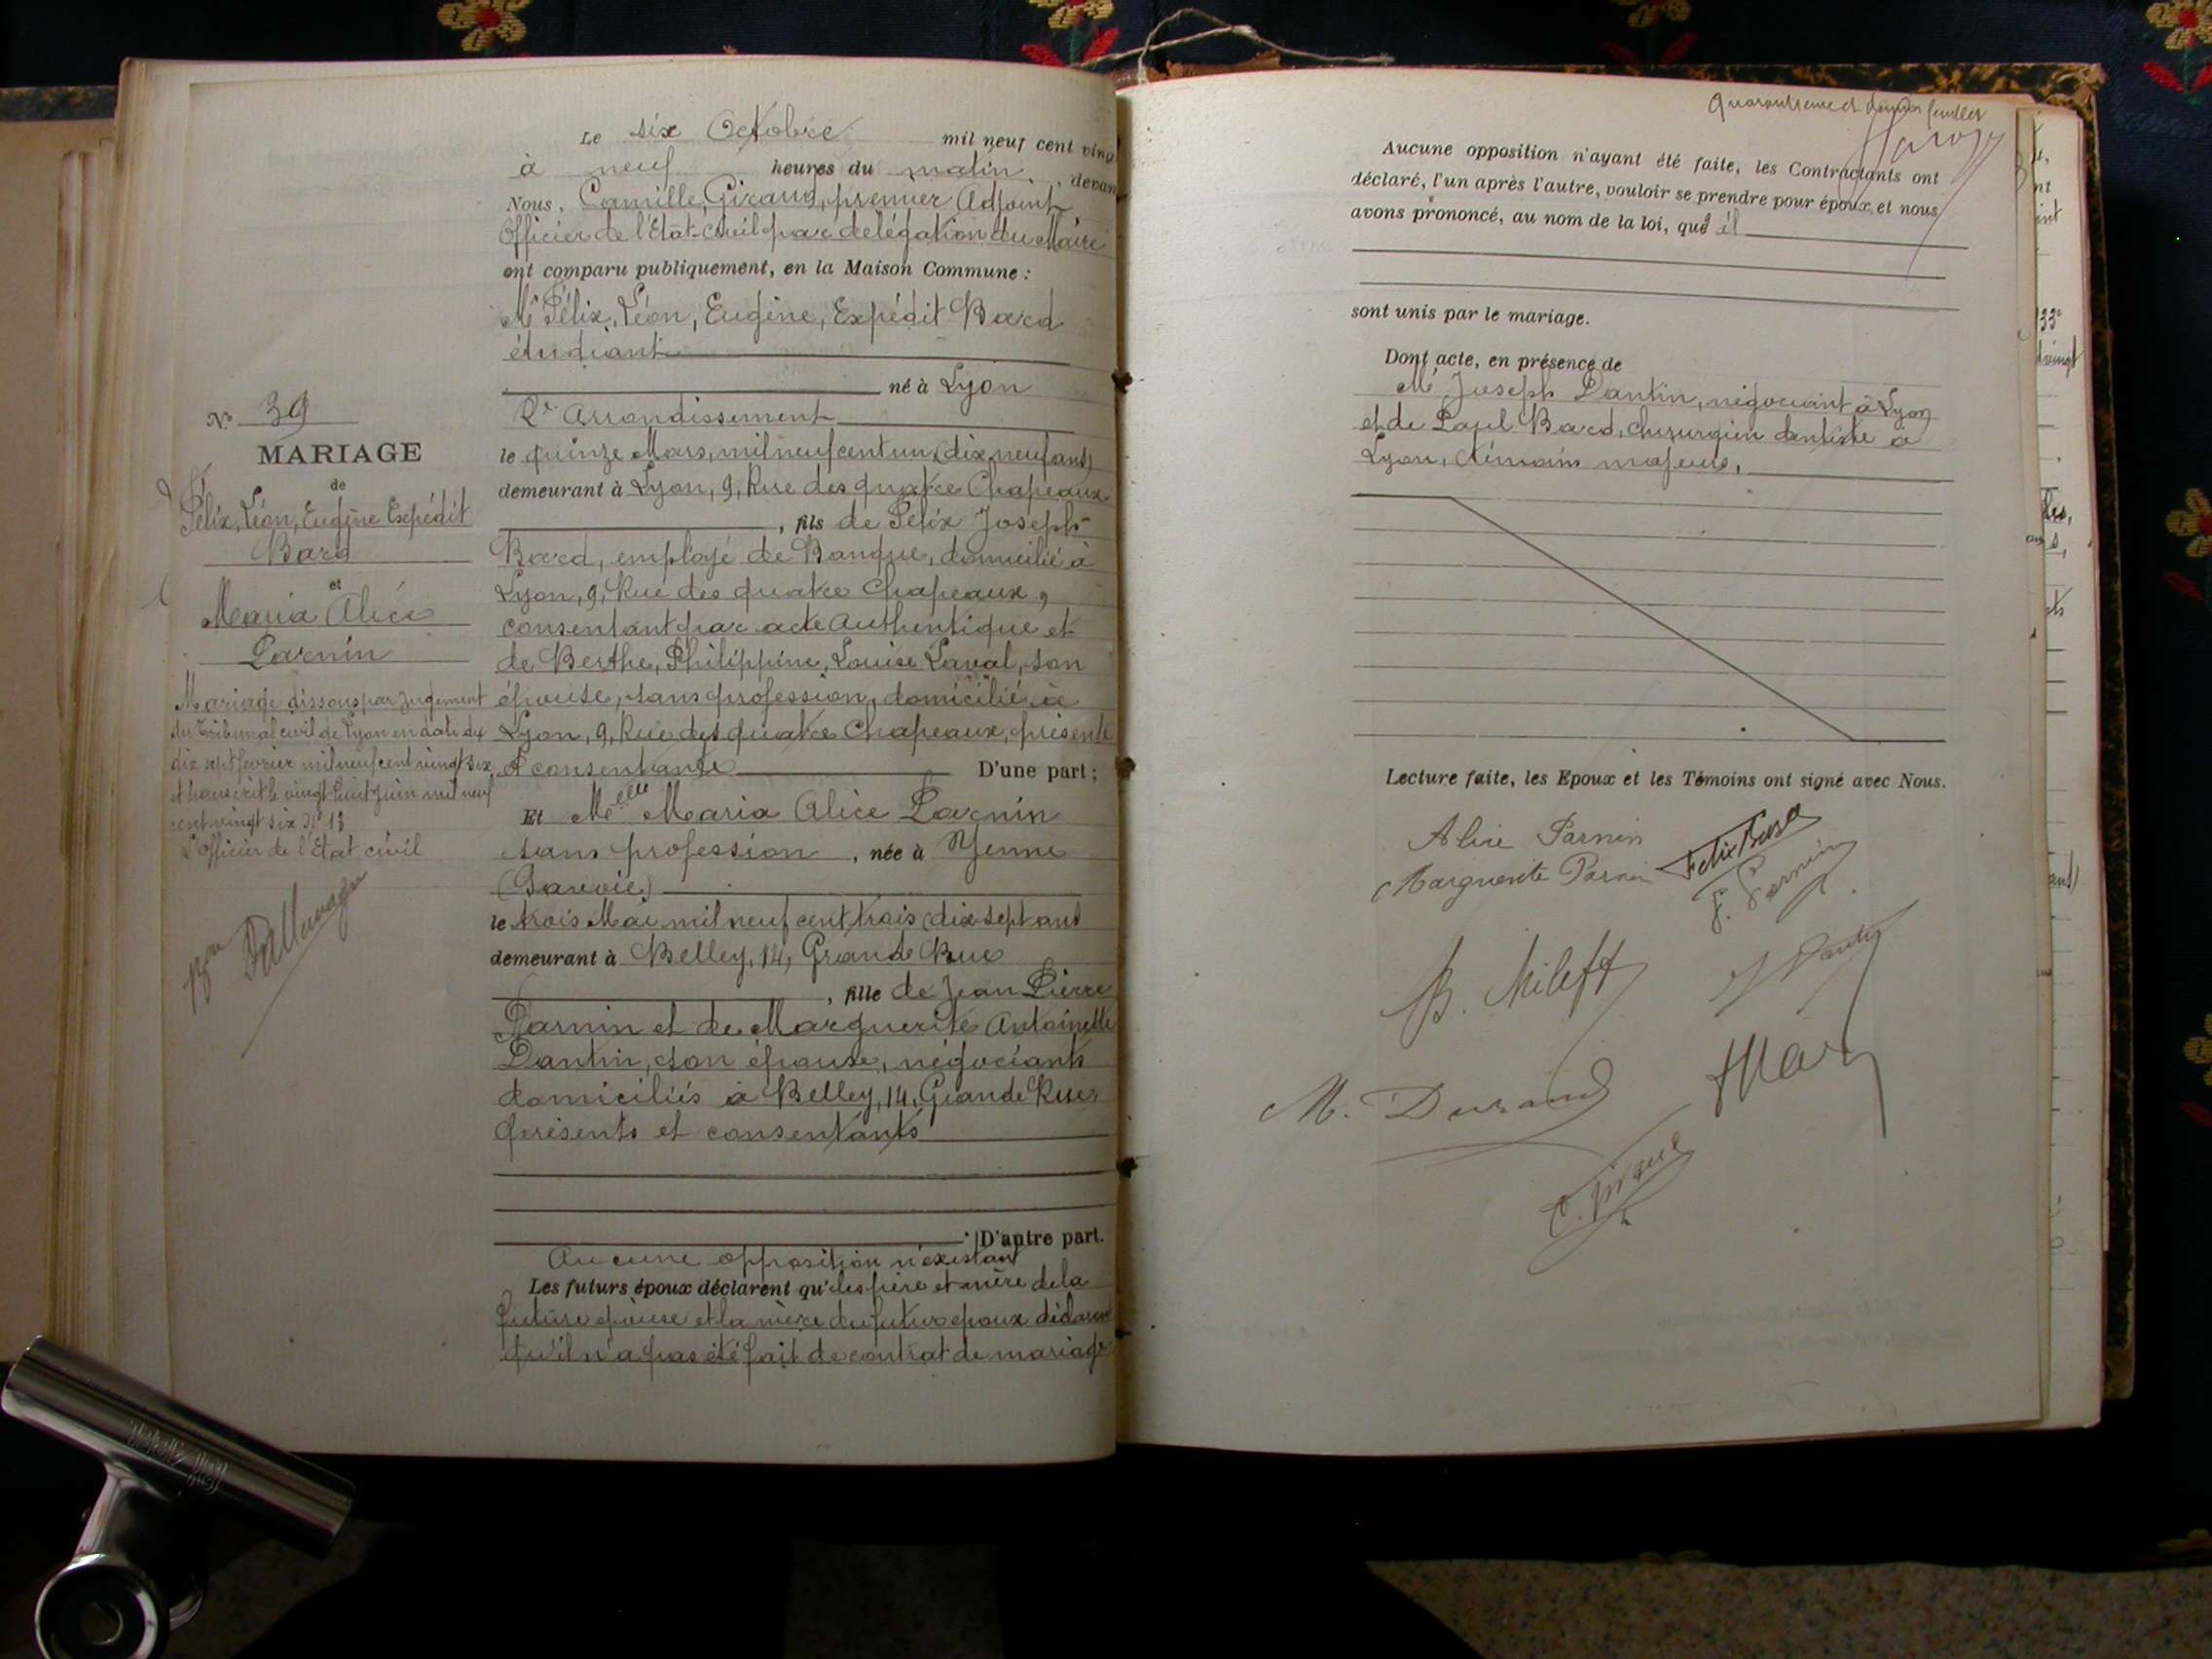 Le six Octobre mil neuf cent vingt
à neuf heures du matin, devant
Nous, Camille Giraud, premier Adjoint
Officier de l'Etat-civil par délégation du Maire
ont comparu publiquement, en la Maison Commune :
Mr Félix, Léon, Eugène, Expédit Bard
étudiant
né à Lyon
2e Arrondissement
le quinze Mars, mil neuf cent un (dix neuf ans)
demeurant à Lyon, 9, Rue des quatre Chapeaux
, fils de Félix Joseph
Bard, employé de Banque, domicilié à
Lyon, 9, Rue des quatre Chapeaux,
consentant par acte Authentique et
de Berthe, Philippine, Louise Laval, son
épouse, sans profession, domicilié à
Lyon, 9, Rue des quatre Chapeaux, présente
et consentante D'une part ;
Et Melle Maria Alice Parnin
sans profession, née à Yenne
(Savoie)
le trois Mai mil neuf cent trois (dix sept ans
demeurant à Belley, 14, Grande Rue
, fille de Jean Pierre
Parnin et de Marguerite Antoinette
Dantin, son épouse, négociants
domiciliés à Belley, 14, Grande Rue
présents et consentants
D'autre part.
Aucune opposition n'existant
Les futurs époux déclarent qu' les père et mère de la
future épouse et la mère du futur époux déclarent
qu'il n'a pas été fait de contrat de mariage
No 39
MARIAGE
de
Félix, Léon, Eugène Expédit
Bard
et
Maria Alice
Parnin
Mariage dissous par jugement
du Tribunal civil de Lyon en date du
dix sept février mil neuf cent vingt six
et transcrit le vingt huit Juin mil neuf
cent vingt six No 13
L'officier de l'Etat civil
Aucune opposition n'ayant été faite, les Contractants ont
déclaré, l'un après l'autre, vouloir se prendre pour époux, et nous
avons prononcé, au nom de la loi, qu'il
sont unis par le mariage.
Dont acte, en présence de
Mr Joseph Dantin, négociant à Lyon
et de Paul Bard, Chirurgien dentiste à
Lyon, témoins majeurs,
Lecture faite, les Epoux et les Témoins ont signé avec Nous.
Alice Parnin Felix Bard
Marguerite Parnin F. Parnin
B. Mileff
M. Durand